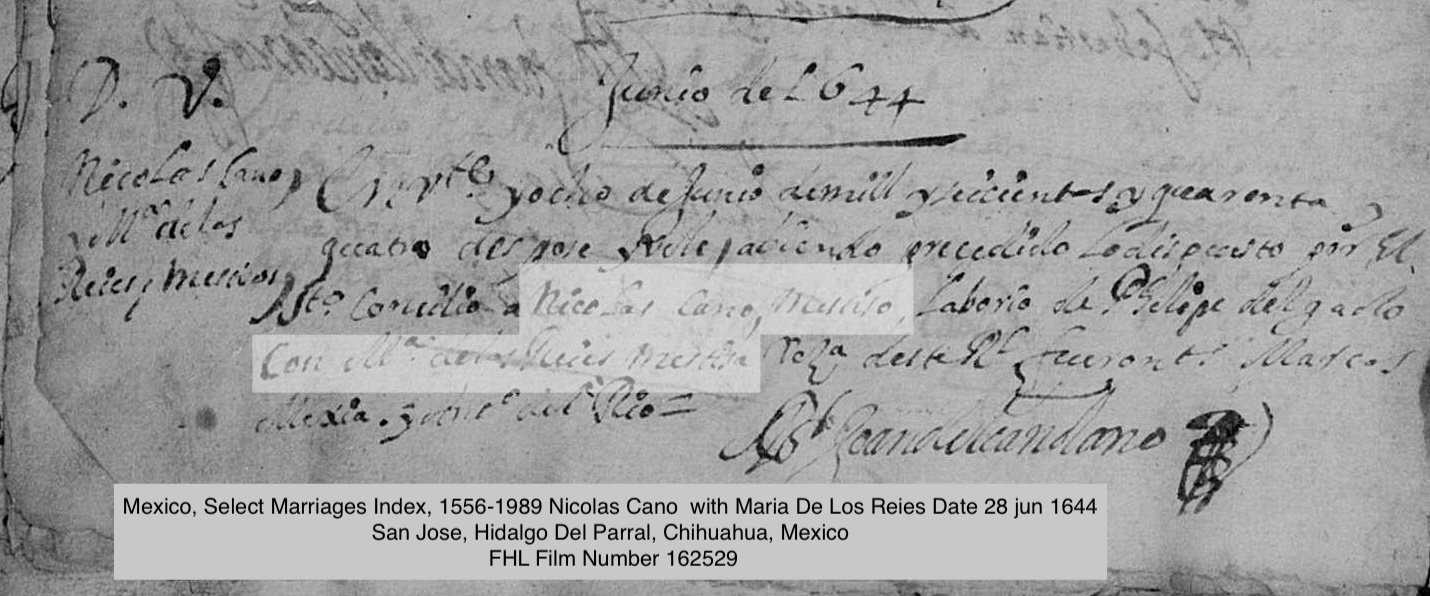 D. V.
Junio de 1644
Nicolas Cano,
y Mª. de los
Reies, mestisos
En vte. y ocho de Junio de mill y seicientos y quarenta y
quatro despose y vele haviendo precedido lo dispuesto por El
Sto. Concilio a Nicolas Cano, mestiso, Laborio de Phelipe delgado
Con Mª. de los Reies mestisa deste Rl. fueron ts. Marcos
Mexia. y del Rio =
Mexico, Select Marriages Index, 1556-1989 Nicolas Cano with Maria De Los Reies Date 28 jun 1644
San Jose, Hidalgo Del Parral, Chihuahua, Mexico
FHL Film Number 162529